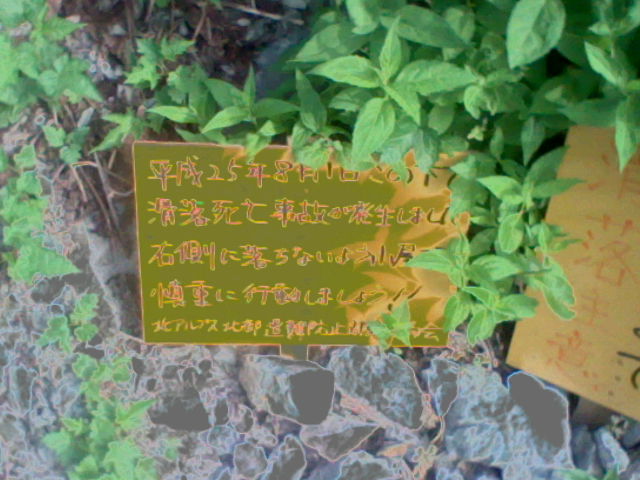 平成25年8月1日
滑落死亡事故が発生しました
右側に落ちないよう
慎重に行動しましょう!!
北アルプス北部遭難防止対策協会
滑落注意